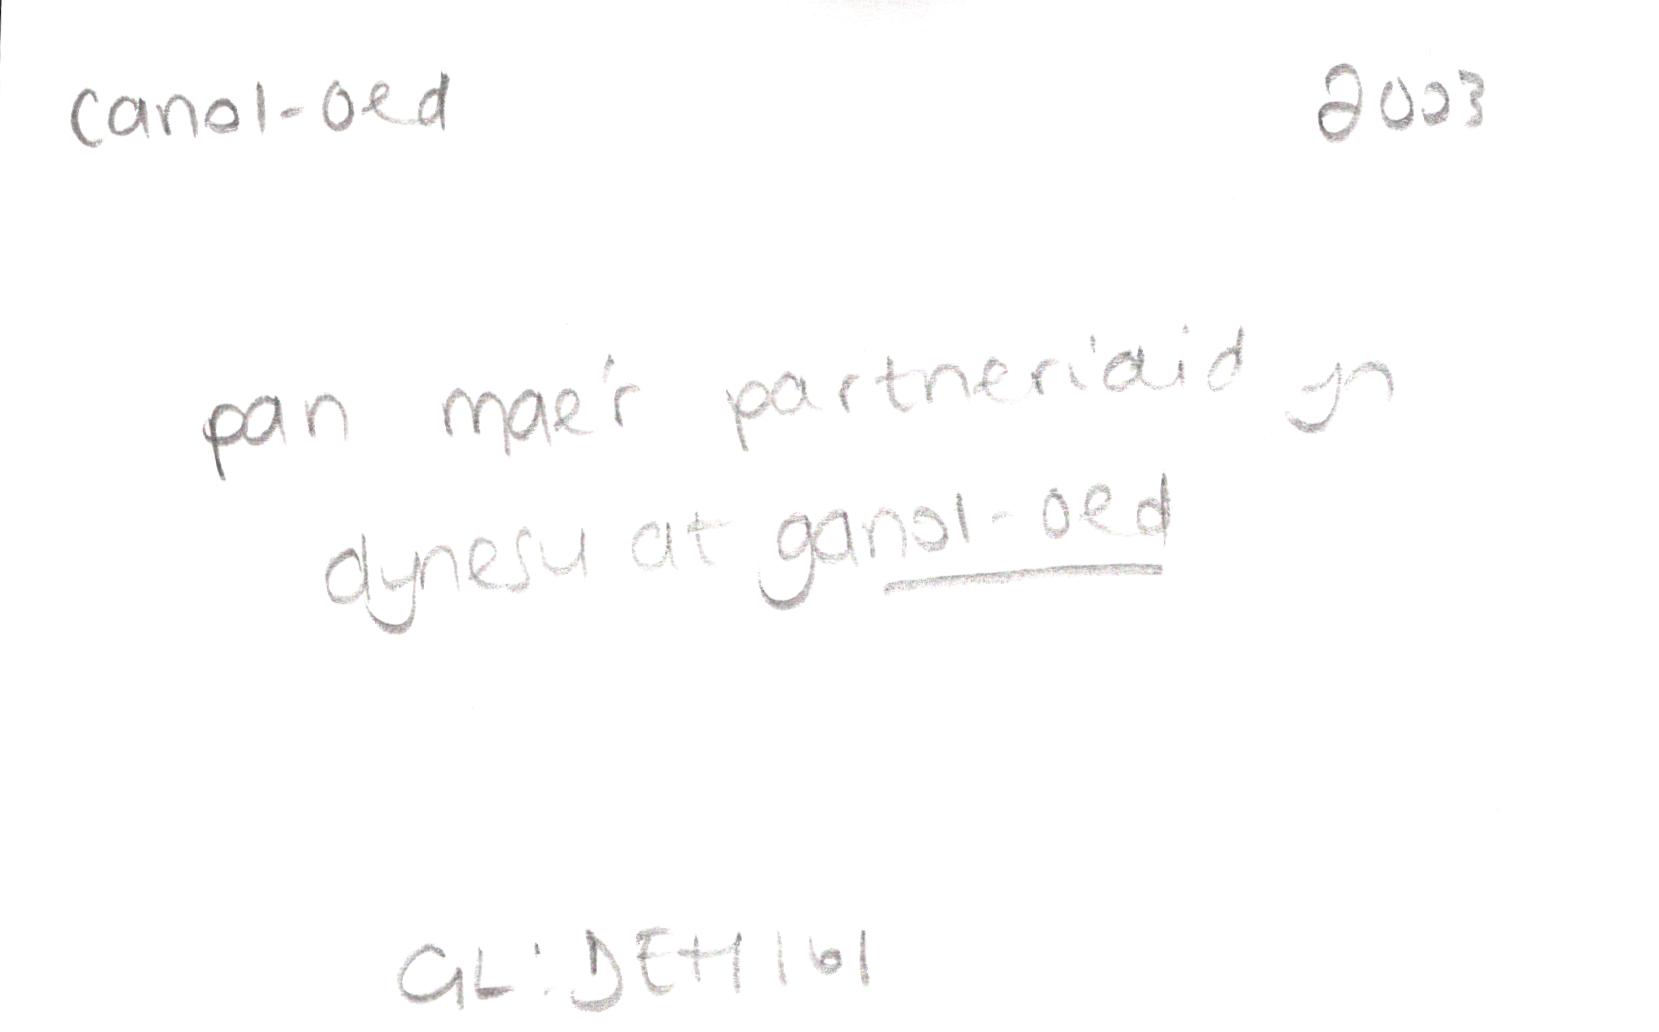 canol-oed 2003
pan mae'r partneriaid yn
dynesu at ganol-oed
GL: DEH 161